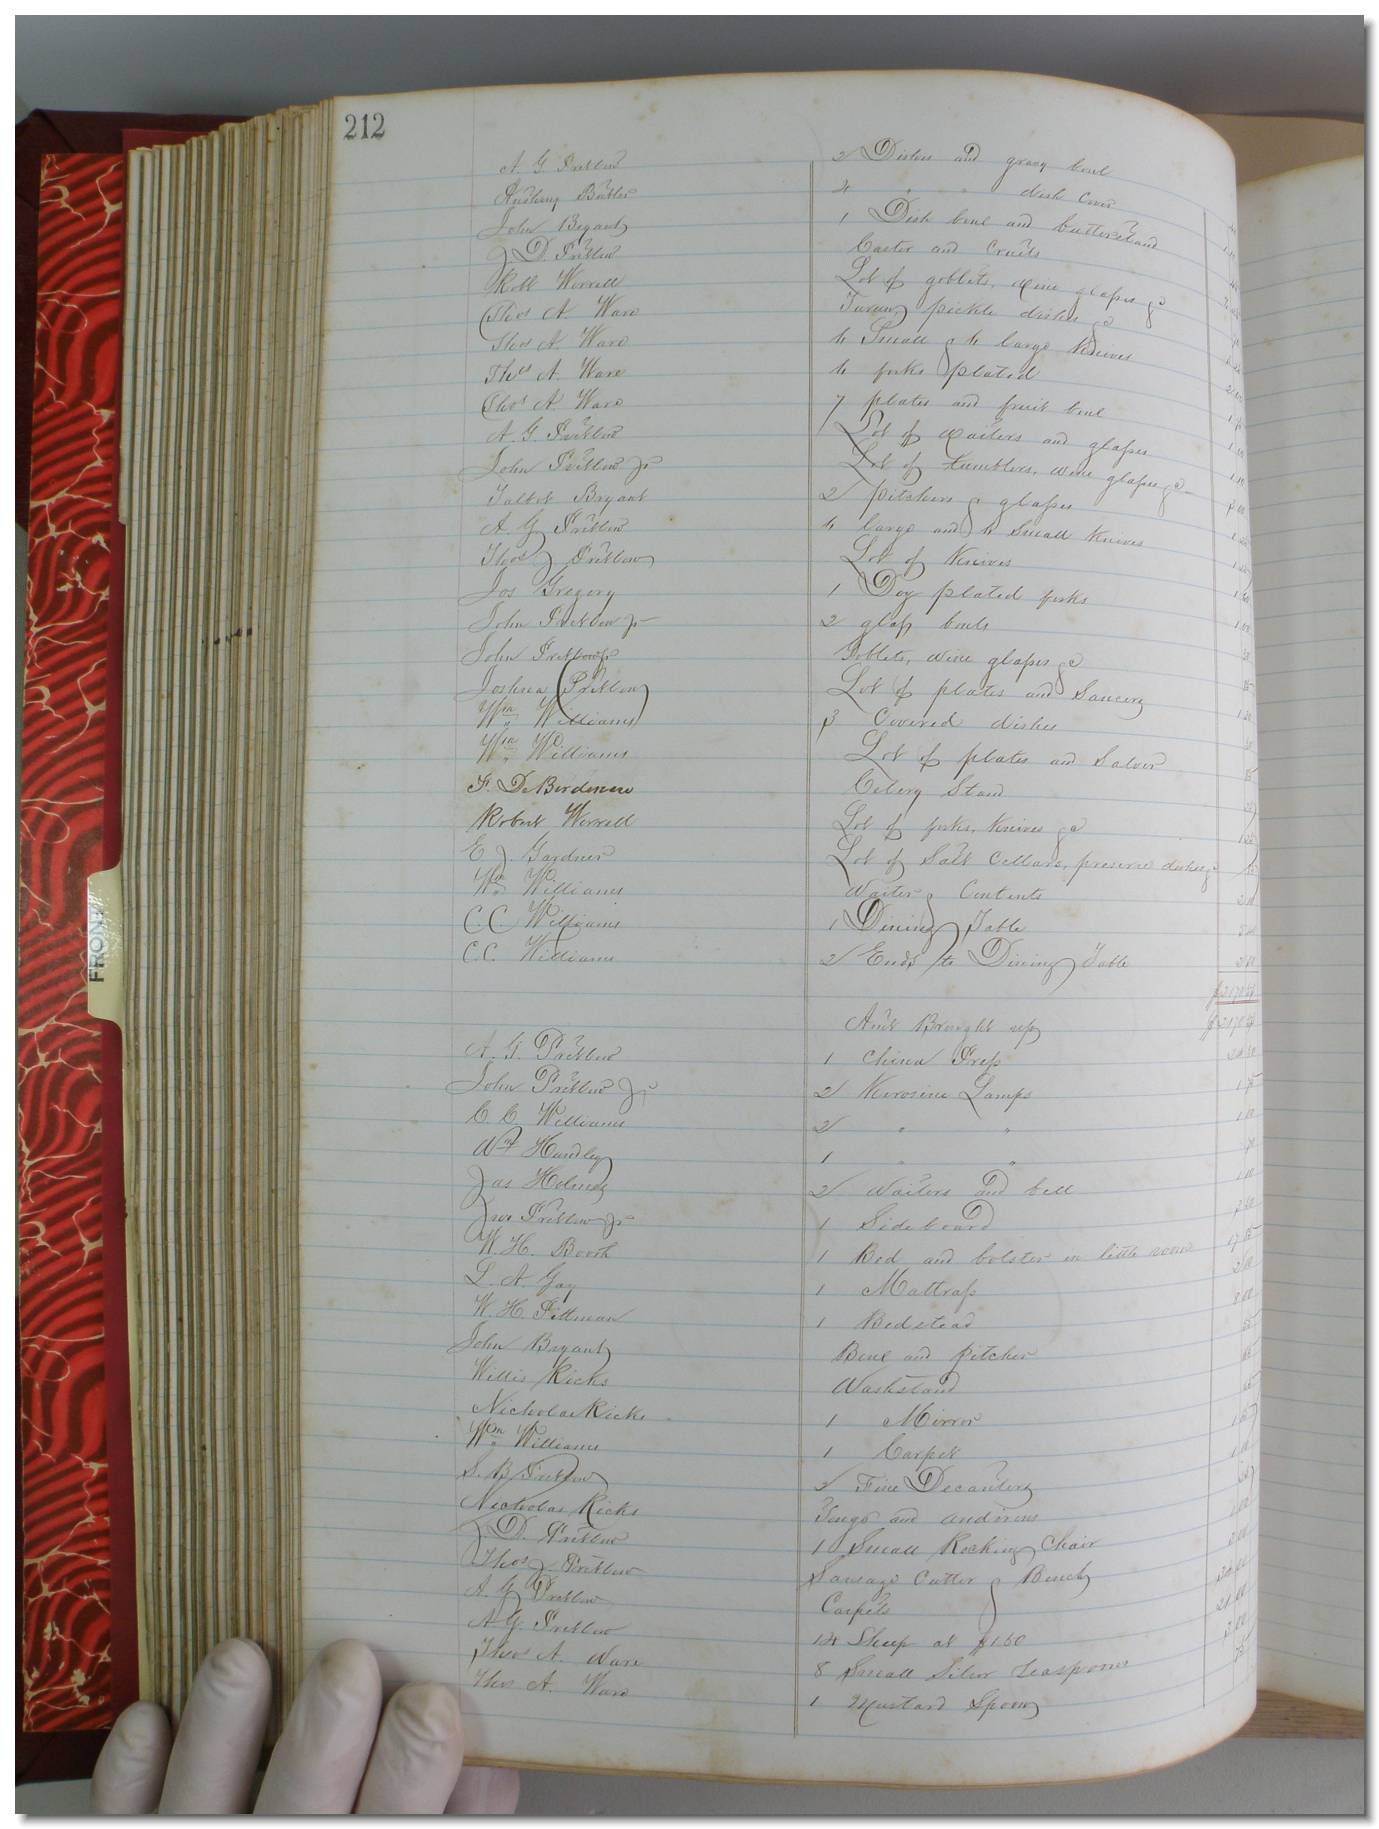 212
A. G. Pretlow 2 Dishes and gravy bowl
Anthony Butler 4 " " dish cover
John Bryant 1 Dish bowl and butterstand
J D Pretlow Caster and Cruits
Robt Worrell Lot of goblets, wine glasses &c
Thos A. Ware Tureen, pickle dishes &c
Thos A. Ware 4 Small & 4 large Knives
Thos A. Ware 4 forks plated
Thos A. Ware 7 plates and fruit bowl
A. G. Pretlow Lot of waiters and glasses
John Pretlow Jr Lot of tumblers, wine glasses &c
Talbot Bryant 2 pitchers & glasses
A. G. Pretlow 4 large and 4 Small Knives
Thos J Pretlow Lot of Knives
Jos Gregory 1 Doz plated forks
John Pretlow Jr 2 glass bowls
John Pretlow Jr Goblets, wine glasses &c
Joshua Pretlow Lot of plates and Saucers
Wm Williams 3 Covered dishes
Wm Williams Lot of plates and Salver
F. DeBordenave Celery Stand
Robert Worrell Lot of forks, Knives &c
E J. Gardner Lot of Salt Cellars, preserve dishes &c
Wm Williams Waiter & Contents
C. C. Williams 1 Dining Table
C. C. Williams 2 Ends to Dining Table
Amt Brought up
A. G. Pretlow 1 China Press
John Pretlow Jr 2 Kerosine Lamps
C. C. Williams 2 " "
Wm Hundley 1 " "
Jas Holmes 2 Waiters and bell
Jno Pretlow Jr 1 Sideboard
W. H. Booth 1 Bed and bolster in little room
L. A. Gay 1 Mattrass
W. H. Pittman 1 Bedstead
John Bryant Bowl and pitcher
Willis Ricks Washstand
Nicholas Ricks 1 Mirror
Wm Williams 1 Carpet
S. B. Pretlow 2 Fine Decanters
Nicholas Ricks Tongs and andirons
J D. Pretlow 1 Small Rocking Chair
Thos J. Pretlow Sausage Cutter & Bench
A. G. Pretlow Carpets
A. G. Pretlow 14 Sheep at $1.50
Thos A. Ware 8 Small Silver teaspoons
Thos A. Ware 1 Mustard Spoon
FRONT